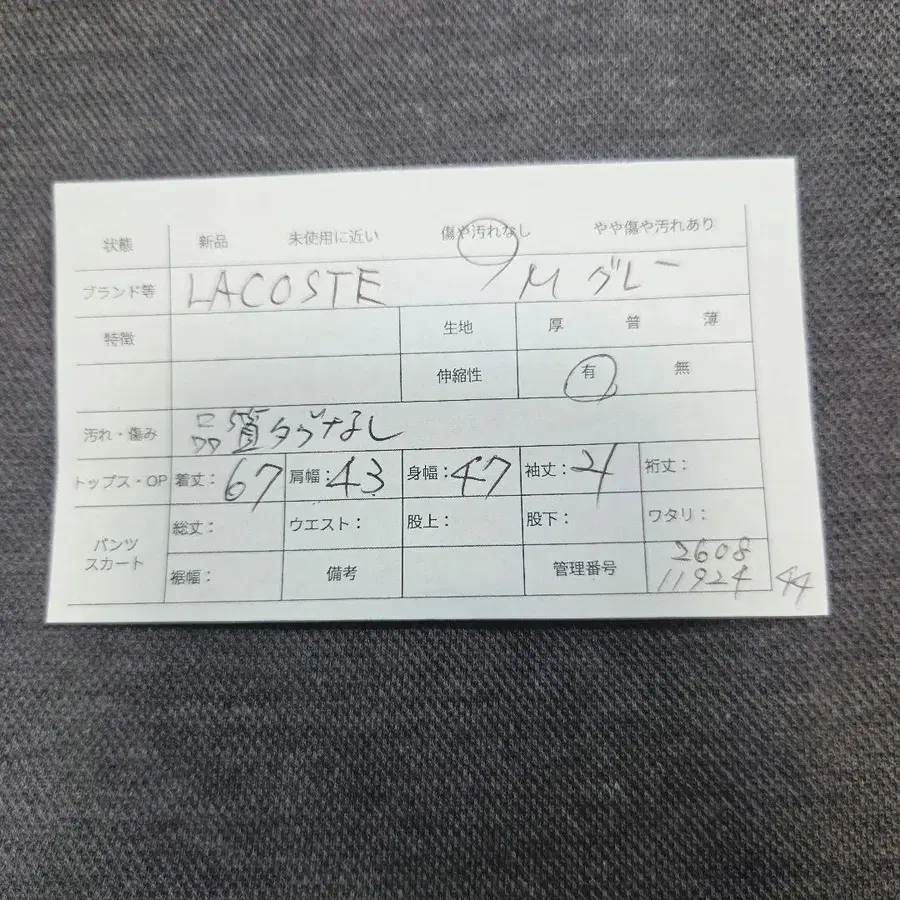 状態 新品 未使用に近い 傷や汚れなし やや傷や汚れあり
ブランド等 LACOSTE M グレー
特徴 生地 厚 普 薄
伸縮性 有 無
汚れ・傷み 品質タグなし
トップス・OP 着丈：67 肩幅：43 身幅：47 袖丈：21 裄丈：
パンツ スカート 総丈： ウエスト： 股上： 股下： ワタリ：
裾幅： 備考 管理番号 2608
11924 44